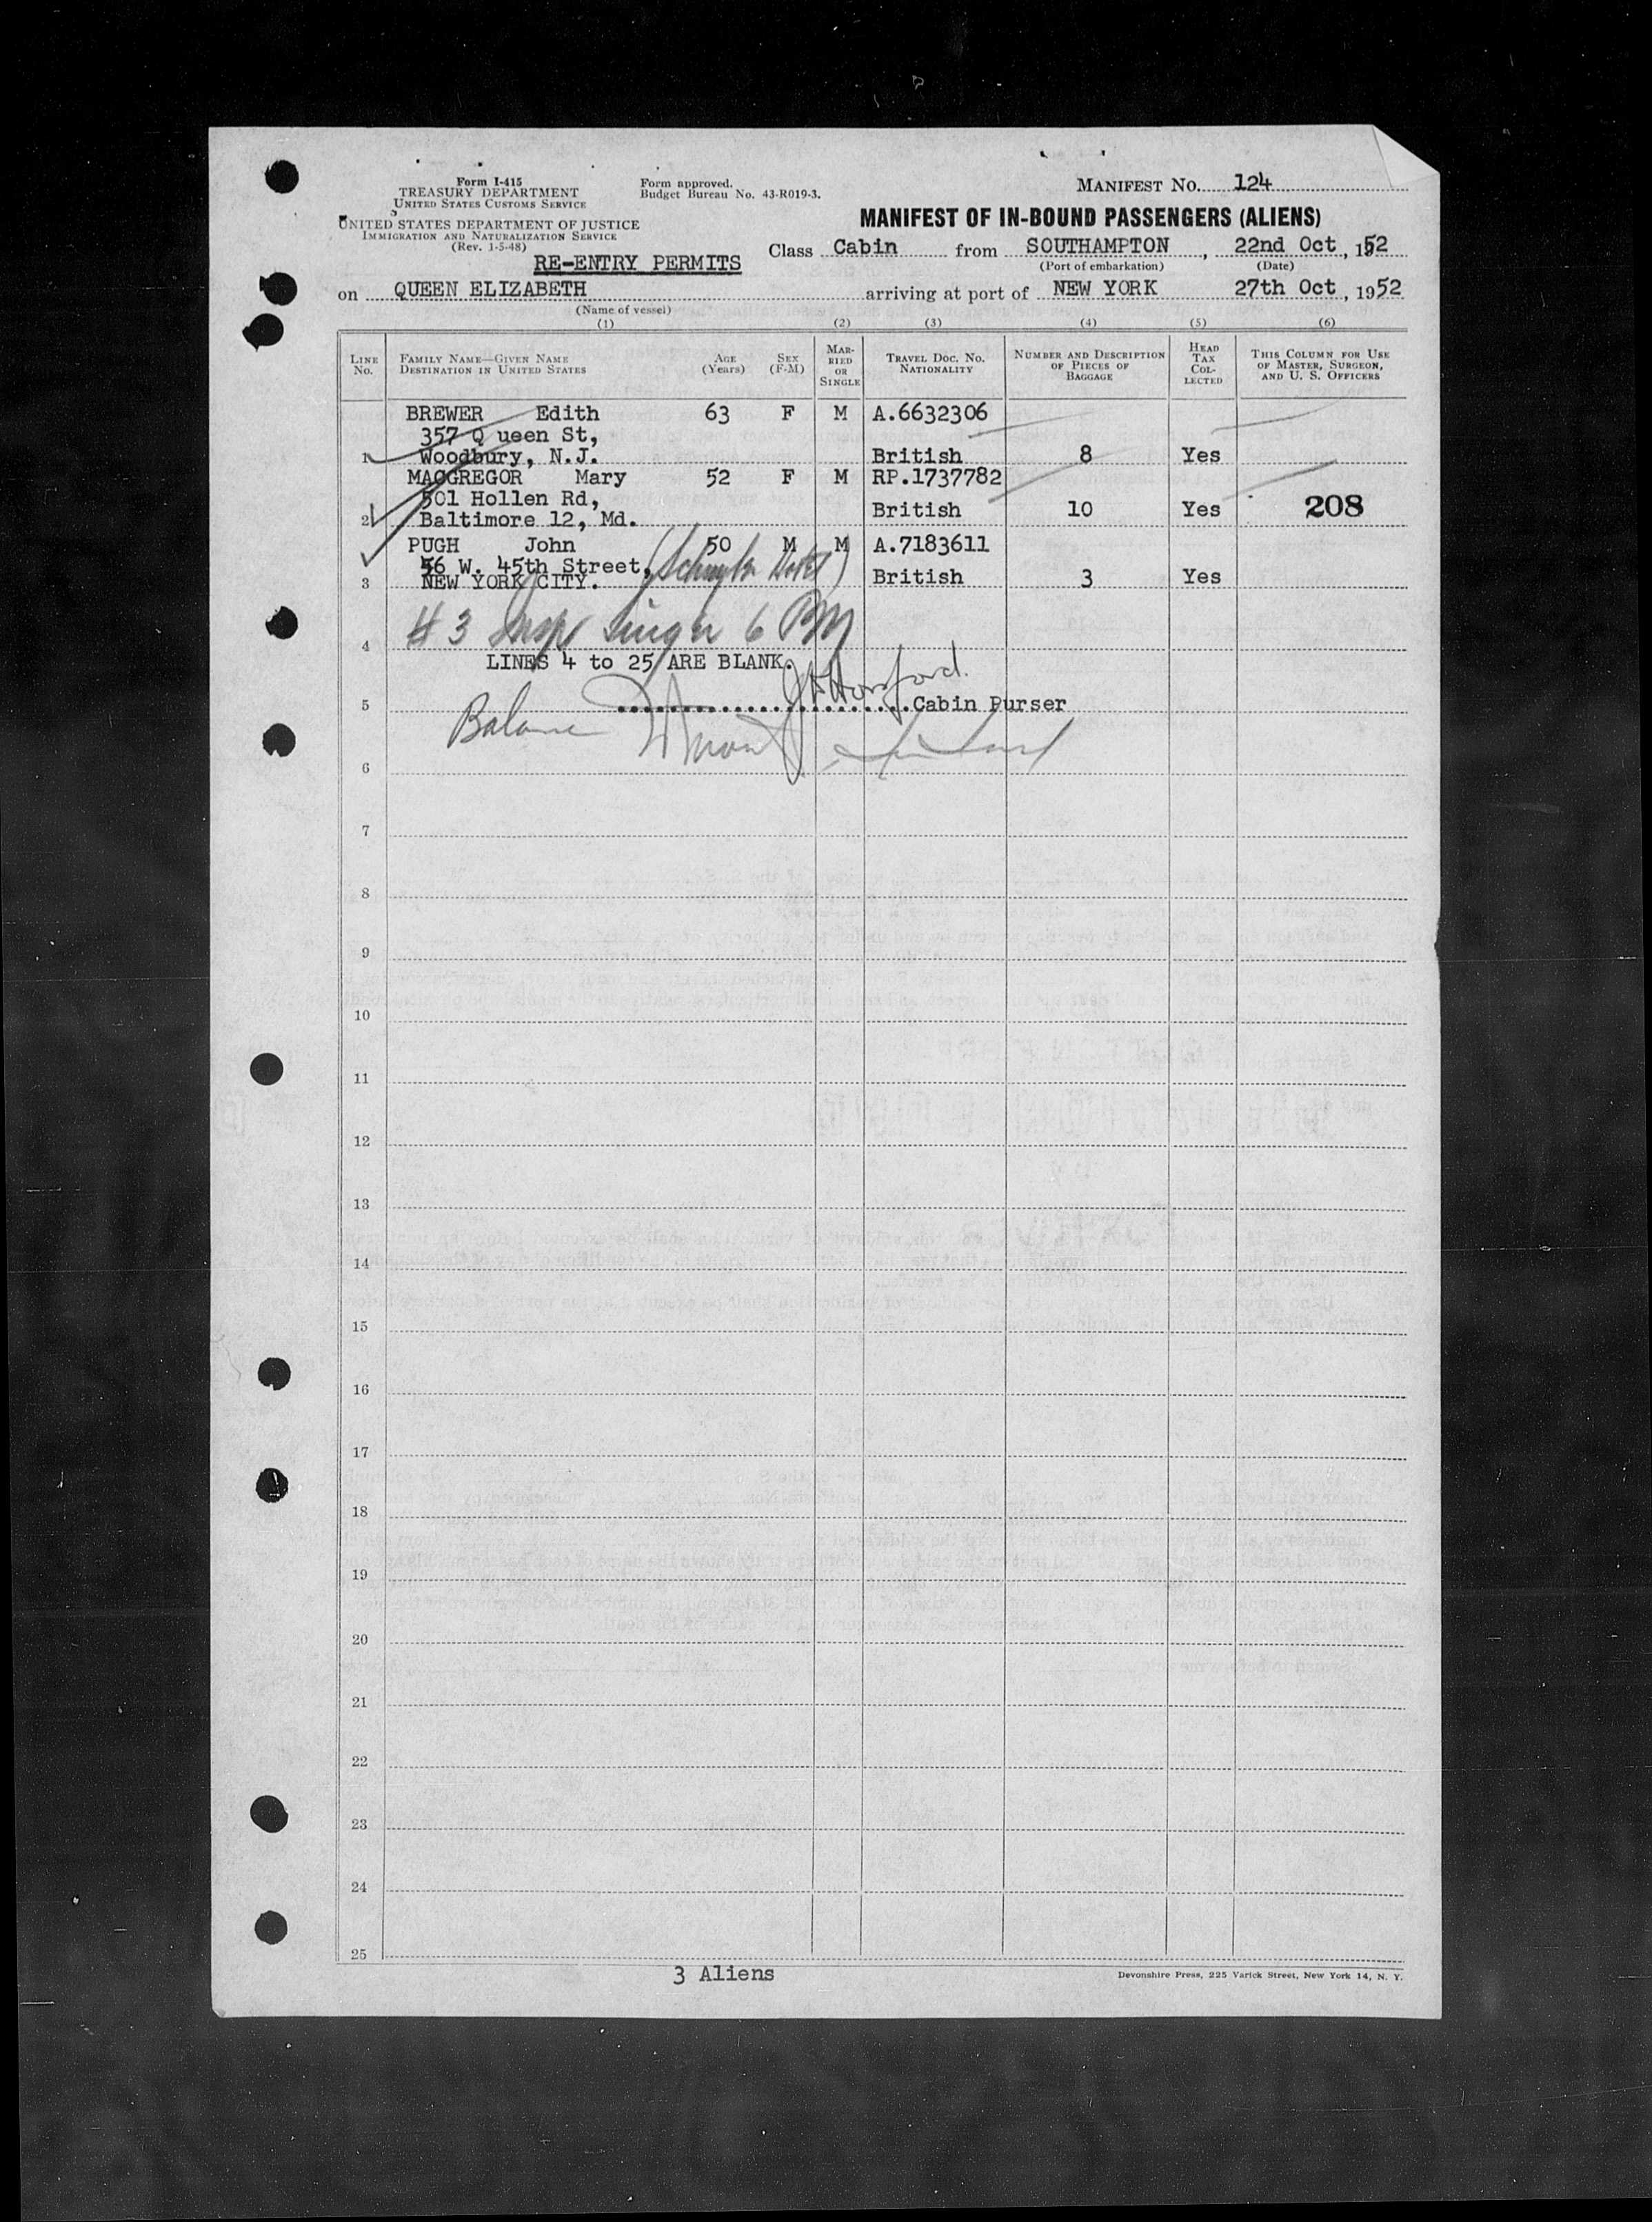 Form I-415
TREASURY DEPARTMENT
UNITED STATES CUSTOMS SERVICE
UNITED STATES DEPARTMENT OF JUSTICE
IMMIGRATION AND NATURALIZATION SERVICE
(Rev. 1-5-48)
Form approved.
Budget Bureau No. 43-R019-3.
MANIFEST NO. 124
MANIFEST OF IN-BOUND PASSENGERS (ALIENS)
RE-ENTRY PERMITS
Class Cabin from SOUTHAMPTON, 22nd Oct, 1952
(Port of embarkation) (Date)
on QUEEN ELIZABETH arriving at port of NEW YORK 27th Oct, 1952
(Name of vessel)
(1) (2) (3) (4) (5) (6)
LINE No.
FAMILY NAME—GIVEN NAME
DESTINATION IN UNITED STATES
AGE (Years)
SEX (F-M)
MARRIED OR SINGLE
TRAVEL DOC. NO.
NATIONALITY
NUMBER AND DESCRIPTION OF PIECES OF BAGGAGE
HEAD TAX COLLECTED
THIS COLUMN FOR USE OF MASTER, SURGEON, AND U. S. OFFICERS
BREWER Edith 63 F M A.6632306
357 Q ueen St,
1 Woodbury, N.J. British 8 Yes
MACGREGOR Mary 52 F M RP.1737782
501 Hollen Rd,
2 Baltimore 12, Md. British 10 Yes 208
PUGH John 50 M M A.7183611
56 W. 45th Street, (Schuyler Hotel)
3 NEW YORK CITY. British 3 Yes
4 # 3 Insp Singer 6 PM
LINES 4 to 25 ARE BLANK.
5 Cabin Purser
Balance
6
7
8
9
10
11
12
13
14
15
16
17
18
19
20
21
22
23
24
25
3 Aliens
Devonshire Press, 225 Varick Street, New York 14, N. Y.